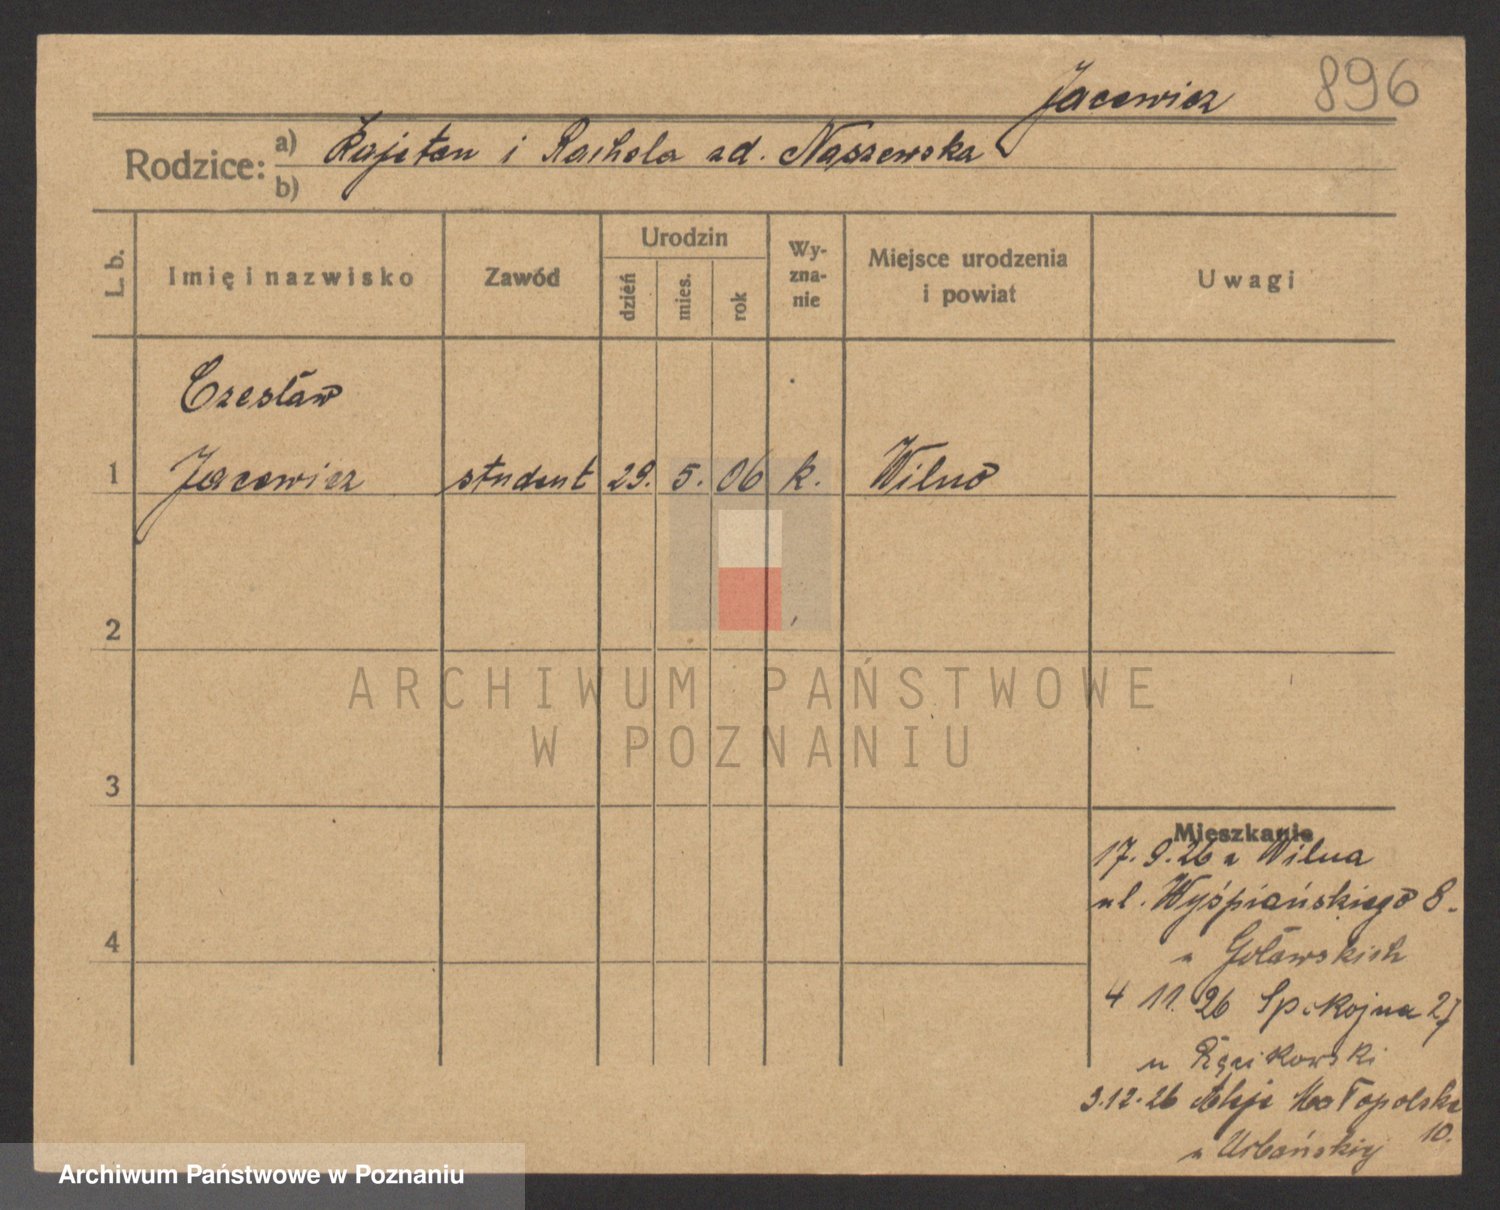 Jacewicz 896
Rodzice: a) Kajetan i Rachela zd. Naszewska
b)
L. b. Imię i nazwisko Zawód Urodzin dzień mies. rok Wy-zna-nie Miejsce urodzenia i powiat Uwagi
Czesław
1 Jacewicz student 29. 5. 06 k. Wilno
2
3
4
Mieszkanie
17. 9. 26 z Wilna
ul. Wyśpiańskiego 8.
u Goławskich
4 11. 26 Spokojna 27
u
3.12.26 Aleje Małopolska
10.
u Urbańskiej
ARCHIWUM PAŃSTWOWE
W POZNANIU
Archiwum Państwowe w Poznaniu